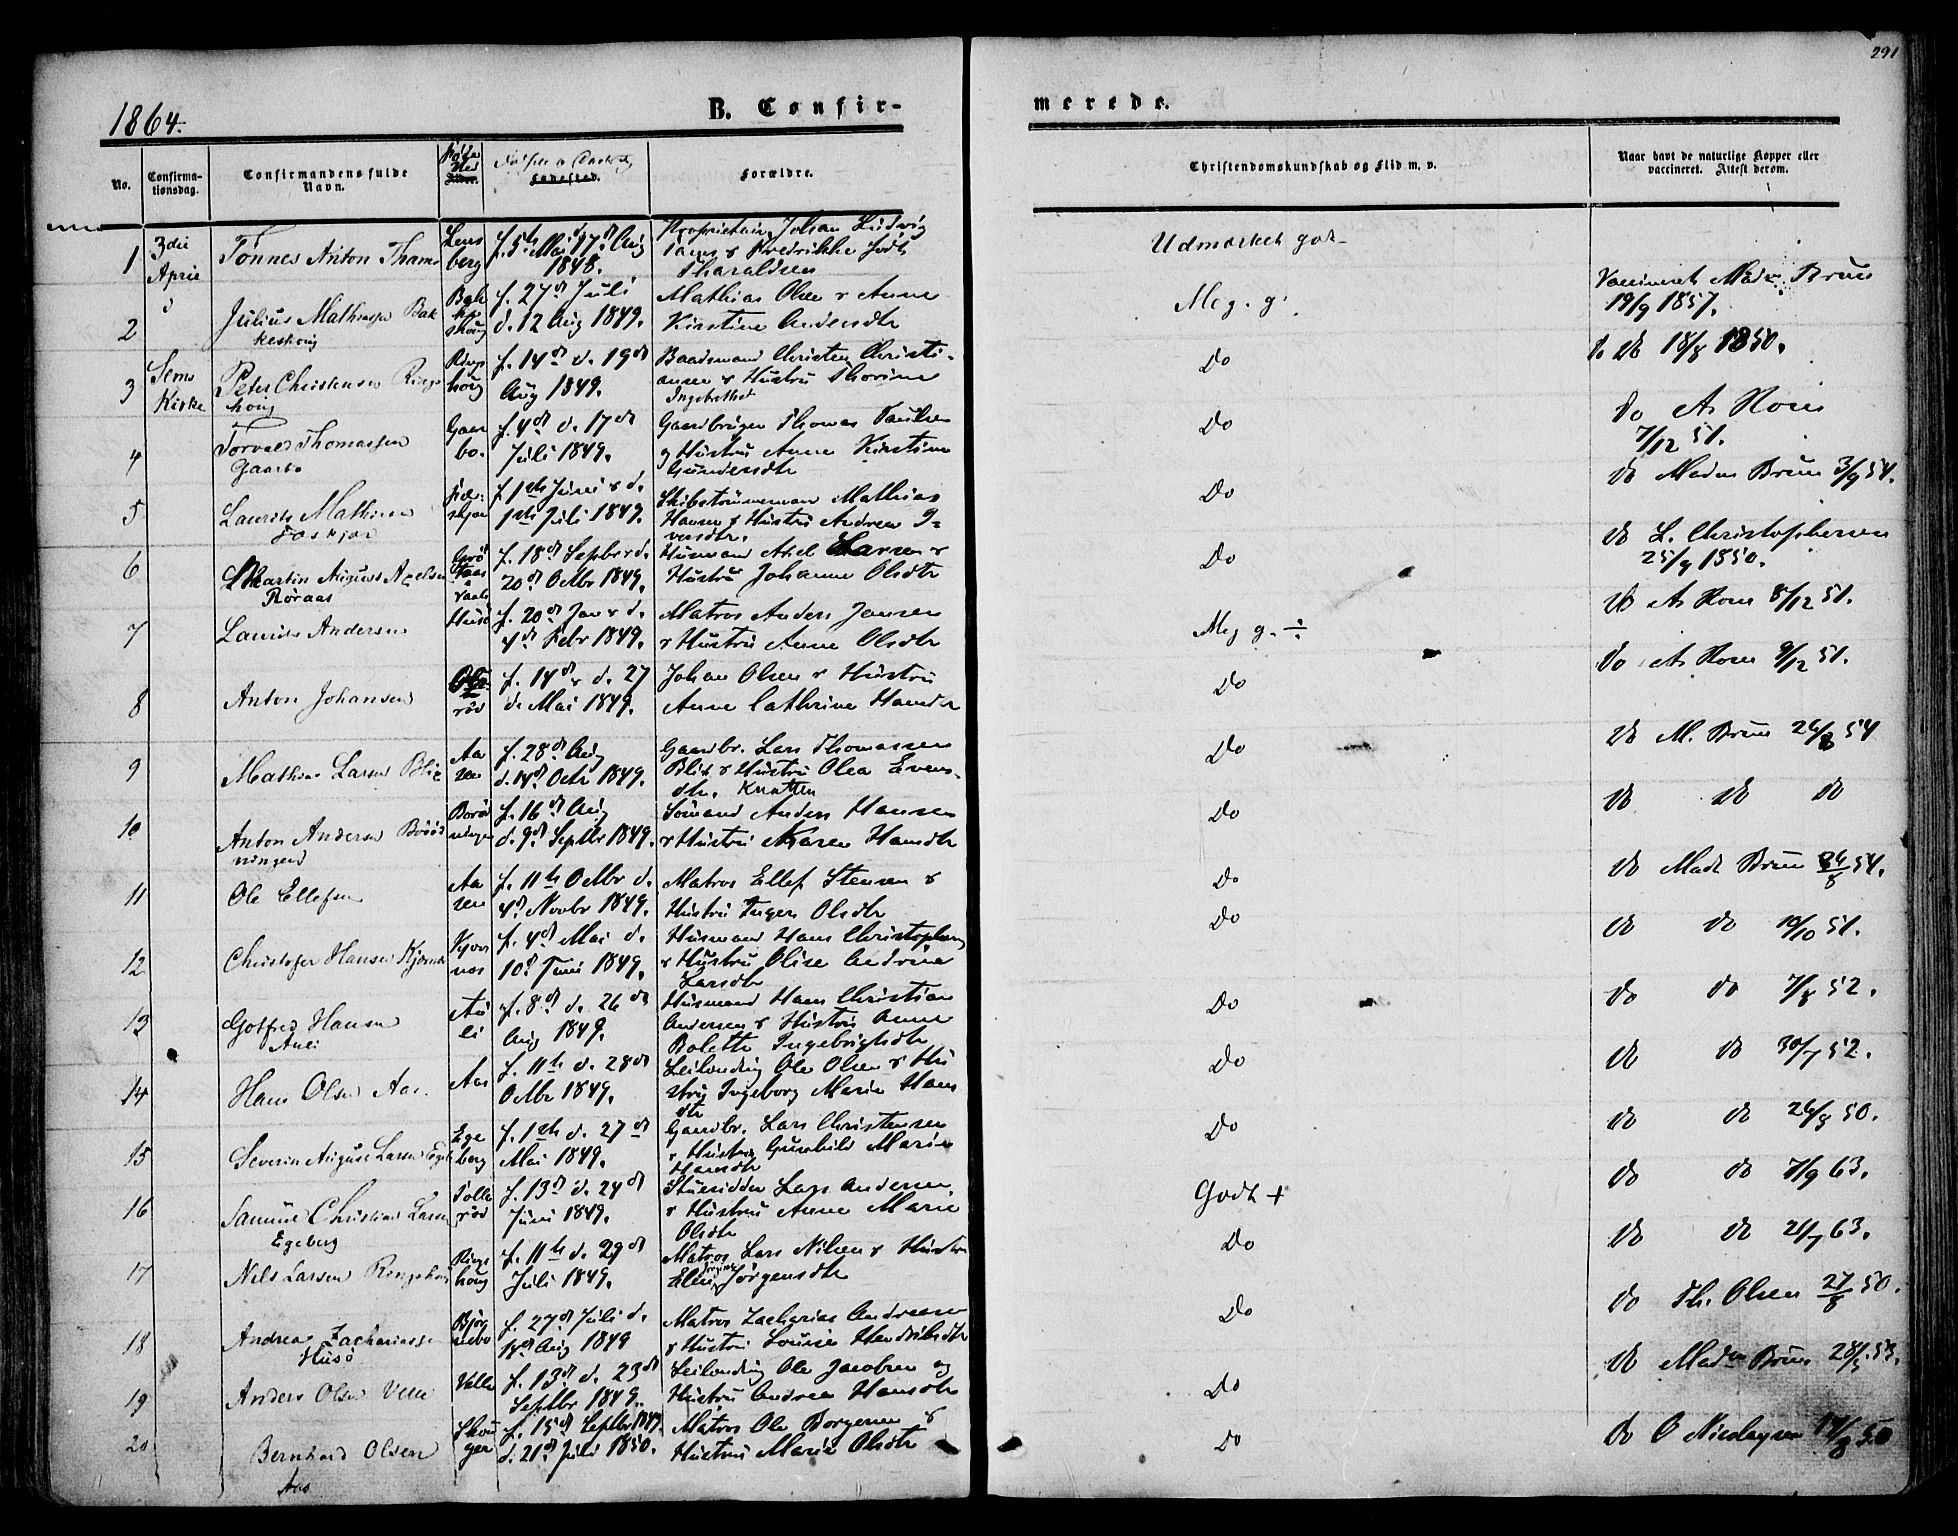 291
1864.
B. Confir-
merede.
No.
Confirma-
tionsdag.
Confirmandens fulde
Navn.
Føde
Sted
Fødested.
Forældre.
Christendomskundskab og Flid m. v.
Naar havt de naturlige Kopper eller
vaccineret. Attest derom.
1 3die Tønnes Anton Thams f. 5te Mai d. 17de Aug Proprietair Johan Ludvig Udmærket godt
April berg 1848. Thams & Fredrikke født
Tharaldsen
Vaccineret Madm. Brun
19/9 1857.
2 Julius Mathisen Bak
keshoug
Bak
ke
shoug
f. 27de Juli
d. 12 Aug 1849.
Mathias Olsen & Anne
Kirstine Andersdtr
Meg. g.
do do 18/8 1850.
3 Sems
Kirke
Peter Christensen Rings
houg
Rings
houg
f. 14de d. 19de
Aug 1849.
Baadsmand Christen Christi-
ansen & Hustru Thorine
Ingebrethsd
Do
do A. Roer
7/12 51.
4 Torvald Thomassen
Gaarbo
Gaar
bo.
f. 4de d. 17de
Juli 1849.
Gaardbruger Thomas Paulsen
og Hustru Anne Kirstine
Gundersdtr
Do
do Madm Brun 3/9 54.
5 Laurits Mathisen
f. 1ste Juni & d.
1ste Juli 1849.
Skibstømmermand Mathias
Hansen & Hustru Andrea I-
versdtr.
Do
do L. Christophersen
25/9 1850.
6 Martin August Axelsen
Røraas
f. 18de Septbr & d.
20de Octbr 1849.
Husmand Axel Larsen &
Hustru Johanne Olsdtr
Do
do A. Roer 8/12 51.
7 Laurits Andersen
Husø
f. 20de Jan & d.
4de Febr 1849.
Matros Anders Jansen
& Hustru Anne Olsdtr
Meg g. ÷
do A. Roer 9/12 51.
8 Anton Johansen
rød
f. 14de & d. 27
de Mai 1849.
Johan Olsen & Hustru
Anne Cathrine Hansdtr
Do
do M. Brun 26/8 54
9 Mathias Larsen Blix
Aa
sen
f. 28de Aug
d. 14de Octr 1849.
Gaardbr. Lars Thomassen
Blix & Hustru Olea Evens-
dtr. Knatten
Do
do do do
10 Anton Andersen Børød
ningen
Børød
ningen
f. 16de Aug
d. 9de Septbr 1849.
Sømand Anders Hansen
& Hustru Maren Hansdtr
Do
do Madm Brun 26/8 54.
11 Ole Ellefsen
Aa
sen
f. 11te Octbr d.
4de Novbr 1849.
Matros Ellef Stensen &
Hustru Inger Olsdtr
Do
do do 10/10 51.
12 Christofer Hansen Kjørnæs
Kjørr
næs
f. 4de Mai d.
10de Juni 1849.
Husmand Hans Christophersen
& Hustru Olise Andrine
Larsdtr
Do
do do 7/8 52.
13 Gotfred Hansen
Auli
Au
li
f. 8de d. 26de
Aug 1849.
Husmand Hans Christian
Andersen & Hustru Anne
Bolette Ingebrigtsdtr
Do
do do 30/7 52.
14 Hans Olsen Aas.
Aas
f. 11te d. 28de
Octbr 1849.
Leilending Ole Olsen & Hu
stru Ingeborg Marie Hans
dtr
Do
do do 26/8 50.
15 Severin August Larsen Egeb
Ege
berg
f. 1ste d. 27de
Mai 1849.
Gaardbr. Lars Christensen
& Hustru Gunhild Marie
Hansdtr
Do
do do 7/9 63.
16 Samuel Christian Larsen
Egeberg
Tolle
rød
f. 13de d. 24de
Juni 1849.
Lars Andersen
& Hustru Anne Marie
Olsdtr
Godt +
do do 21/7 63.
17 Nils Larsen Ringshoug
Rings
houg
f. 11te d. 29de
Juli 1849.
Matros Lars Nilsen & Hustru
Elen Jørgine Jørgensdtr
Do
do Th. Olsen 27/8 50.
18 Andreas Zachariassen
Husø
Bjør
nebo
f. 27de Juli d.
18de Aug 1849
Matros Zacharias Andreasen
& Hustru Louise Hendriksdtr
Do
do Madm Brun 28/5 53.
19 Anders Olsen Velle
Velle
f. 13de d. 23de
Septbr 1849.
Leilending Ole Jacobsen og
Hustru Andrea Hansdtr
Do
do O Nicolaysen 14/8 50
20 Bernhard Olsen
Aas
Skou
ger
f. 15de Septbr 1849.
d. 21de Juli 1850.
Matros Ole Borgersen &
Hustru Marie Olsdtr
Do